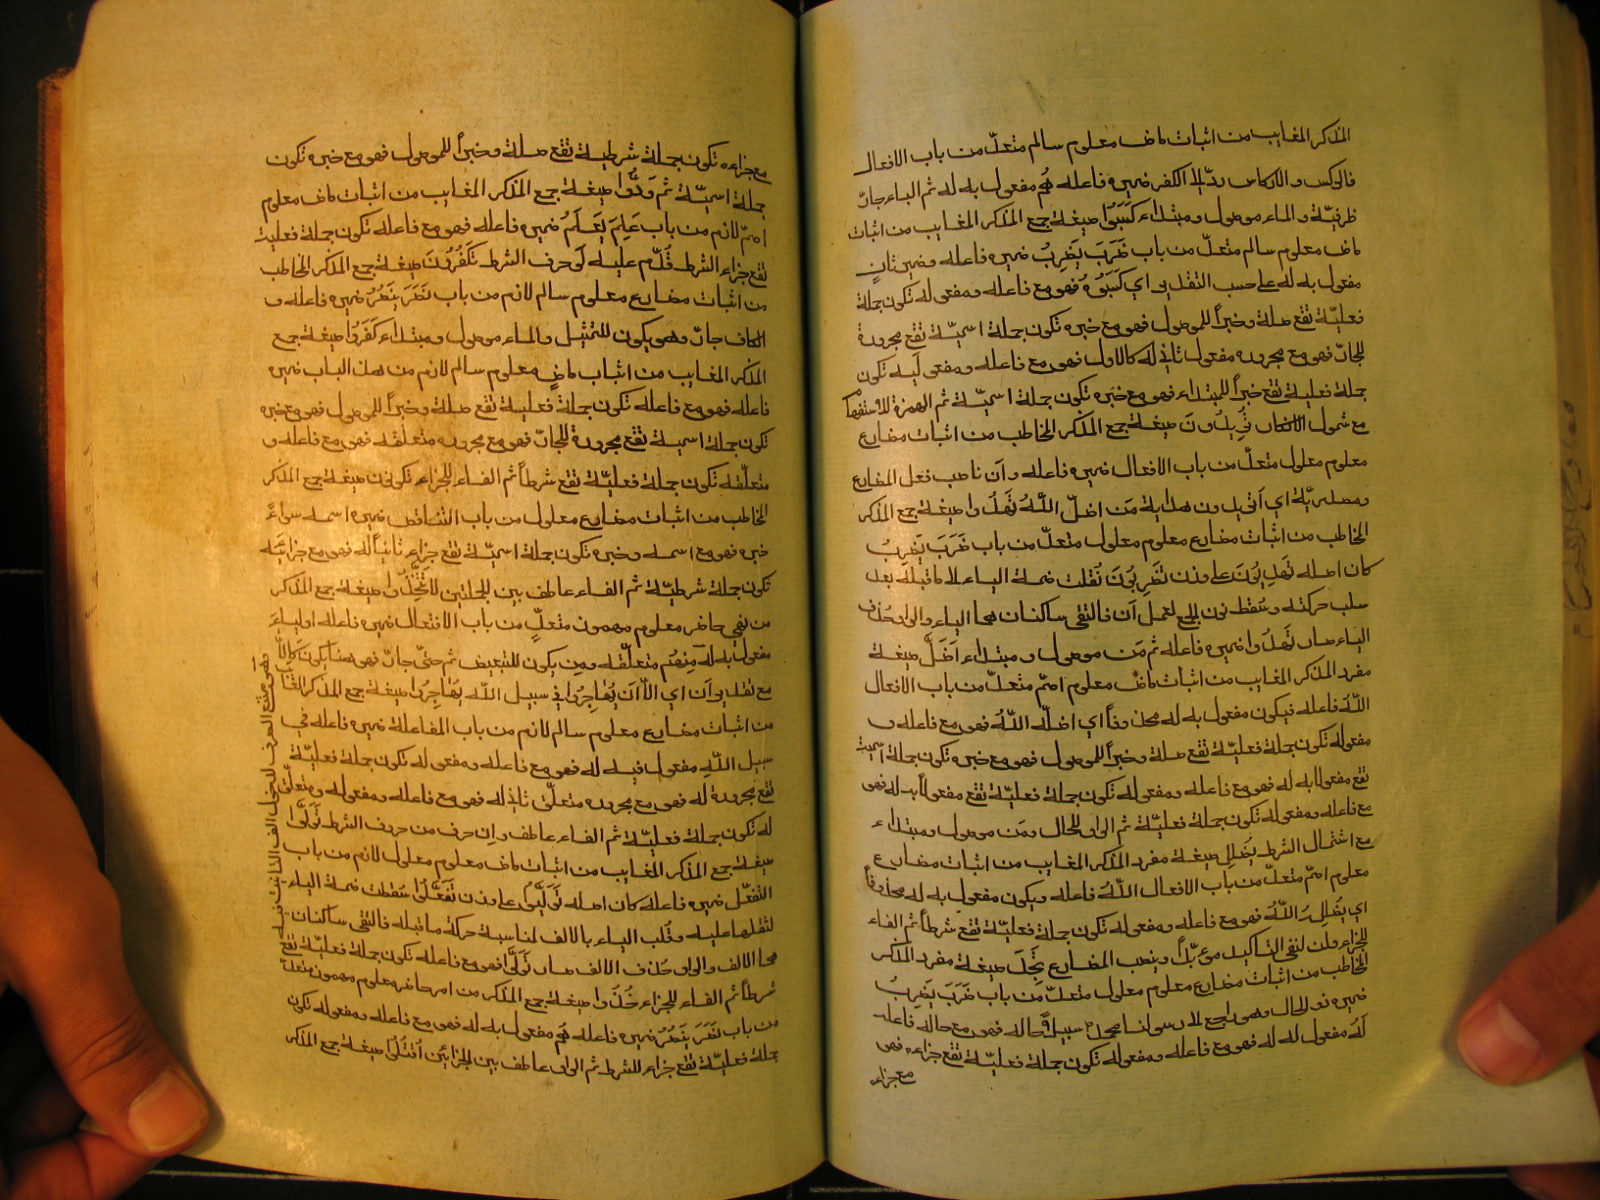 المذكر المغايب من اثبات ماض معلوم سالم متعدّ من باب الافعال
فالركس والاركاس ردّ الكفر ضميره فاعله هُم مفعول به له ثم الباء جارّ
ظرفيّة والماء موصول ومبتداء كَسَبُوا صيغة جمع المذكر المغايب من اثبات
ماض معلوم سالم متعدّ من باب ضَرَبَ يَضرِبُ ضميره فاعله وضمير ثانٍ
مفعول به له على حسب التقدير اي كَسَبُوهُ فهو مع فاعله ومفعوله تكون جملة
فعليّة تقع صلة وخبراً للموصول فهو مع خبره تكون جملة اسميّة تقع مجرورة
للجارّ فهو مع مجروره مفعول ثانٍ له كالاول فهو مع فاعله ومفعوليه تكون
جملة فعلية تقع خبراً للمبتداء فهو مع خبره تكون جملة اسميّة ثم الهمزة للاستفهام
مع شمول الانكار تُرِيدُونَ صيغة جمع المذكر المخاطب من اثبات مضارع
معلوم معلول متعدّ من باب الافعال ضميره فاعله وأن ناصب فعل المضارع
ومصدريّة اي أتريدون هداية مَن اضلّ اللّٰهُ تَهْدُوا صيغة جمع المذكر
المخاطب من اثبات مضارع معلوم معلول متعدّ من باب ضَرَبَ يَضرِبُ
كان اصله تَهدِيُونَ على وزن تَضرِبُونَ نُقلت ضمة الياء الى ما قبله بعد
سلب حركته وسُقط نون الجمع لعمل أن فالتقى ساكنان هما الياء والواو حُذف
الياء صار تَهْدُوا ضميره فاعله ثم مَن موصول ومبتداء أضَلَّ صيغة
مفرد المذكر المغايب من اثبات ماض معلوم اصمّ متعدّ من باب الافعال
اللّٰهُ فاعله فيكون مفعول به له محذوفاً اي اضلّه اللّٰهُ فهو مع فاعله و
مفعوله تكون جملة فعليّة تقع صلة وخبراً للموصول فهو مع خبره تكون جملة اسميّة
تقع مفعولاً به له فهو مع فاعله ومفعوله تكون جملة فعليّة تقع مفعولاً به له فهو
مع فاعله ومفعوله تكون جملة فعليّة ثم الواو للحال ومَن موصول ومبتداء
مع اشتمال الشرط يُضلِلِ صيغة مفرد المذكر المغايب من اثبات مضارع
معلوم اصمّ متعدّ من باب الافعال اللّٰهُ فاعله ويكون مفعول به له محذوفاً
اي يُضلِلهُ اللّٰهُ فهو مع فاعله ومفعوله تكون جملة فعليّة تقع شرطاً ثم الفاء
للجزاء ولن لنفي التاكيد مؤبّداً وينصب المضارع تَجِدَ صيغة مفرد المذكر
المخاطب من اثبات مضارع معلوم معلول متعدّ من باب ضَرَبَ يَضرِبُ
ضميره ذو الحال وهو راجع الى رسولنا محمد سبيلاً حاله فهو مع حاله فاعله
لَهُ مفعول له له فهو مع فاعله ومفعوله تكون جملة فعليّة تقع جزاءه فهو
مع جزاءه
مع جزاءه تكون جملة شرطية تقع صلة وخبراً للموصول فهو مع خبره تكون
جملة اسميّة ثم وَدُّوا صيغة جمع المذكر المغايب من اثبات ماض معلوم
اصمّ لازم من باب عَلِمَ يَعلَمُ ضميره فاعله فهو مع فاعله تكون جملة فعلية
تقع جزاء الشرط قُدّم عليه لَو حرف الشرط تَكفُرُونَ صيغة جمع المذكر المخاطب
من اثبات مضارع معلوم سالم لازم من باب نَصَرَ يَنصُرُ ضميره فاعله و
الكاف جارّ وهو يكون للتمثيل والماء موصول ومبتداء كَفَرُوا صيغة جمع
المذكر المغايب من اثبات ماضٍ معلوم سالم لازم من هذا الباب ضميره
فاعله فهو مع فاعله تكون جملة فعليّة تقع صلة وخبراً للموصول فهو مع خبره
تكون جملة اسمية تقع مجرورة للجارّ فهو مع مجروره متعلّقه فهو مع فاعله و
متعلّقه تكون جملة فعليّة تقع شرطاً ثم الفاء للجزاء تكونون صيغة جمع المذكر
المخاطب من اثبات مضارع معلول من باب الناقص ضميره اسمه سواءً
خبره فهو مع اسمه وخبره تكون جملة اسميّة تقع جزاء ثانياً له فهو مع جزائيه
تكون جملة شرطيّة ثم الفاء عاطف بين الجملتين لا تَتَّخِذُوا صيغة جمع المذكر
من نهي حاضر معلوم مهموز متعدّ من باب الافتعال ضميره فاعله اولياءَ
مفعول به له مِنهُم متعلّقه ومِن يكون للتبعيض ثم حتّى جارّ فهو هنا يكون كالاّ
مع تقدير أن اي الاّ أن يُهاجِرُوا في سبيل اللّٰه يُهاجِرُوا صيغة جمع المذكر الغايب
من اثبات مضارع معلوم سالم لازم من باب المفاعلة ضميره فاعله في
سبيل اللّٰهِ مفعول فيه له فهو مع فاعله ومفعوله تكون جملة فعليّة
تقع مجرورة له فهو مع مجروره متعلّق ثانٍ له فهو مع فاعله ومفعوله ومتعلّقي
له تكون جملة فعليّة ثم الفاء عاطف وإن حرف من حروف الشرط تَوَلَّوا
صيغة جمع المذكر المغايب من اثبات ماض معلوم معلول لازم من باب
التفعّل ضميره فاعله كان اصله تَوَلَّيُوا على وزن تَفَعَّلُوا سُقطت ضمة الياء
لثقلها عليه وقُلب الياء بالالف لمناسبة حركة ما قبله فالتقى ساكنان
هما الالف والواو حُذف الالف صار تَوَلَّوا فهو مع فاعله تكون جملة فعليّة تقع
شرطاً ثم الفاء للجزاء خُذُوا صيغة جمع المذكر من امر حاضر معلوم مهموز متعدّ
من باب نَصَرَ يَنصُرُ ضميره فاعله هُم مفعول به له فهو مع فاعله ومفعوله تكون
جملة فعليّة تقع جزاء للشرط ثم الواو عاطف بين الجزائين اُقتُلُوا صيغة جمع المذكر